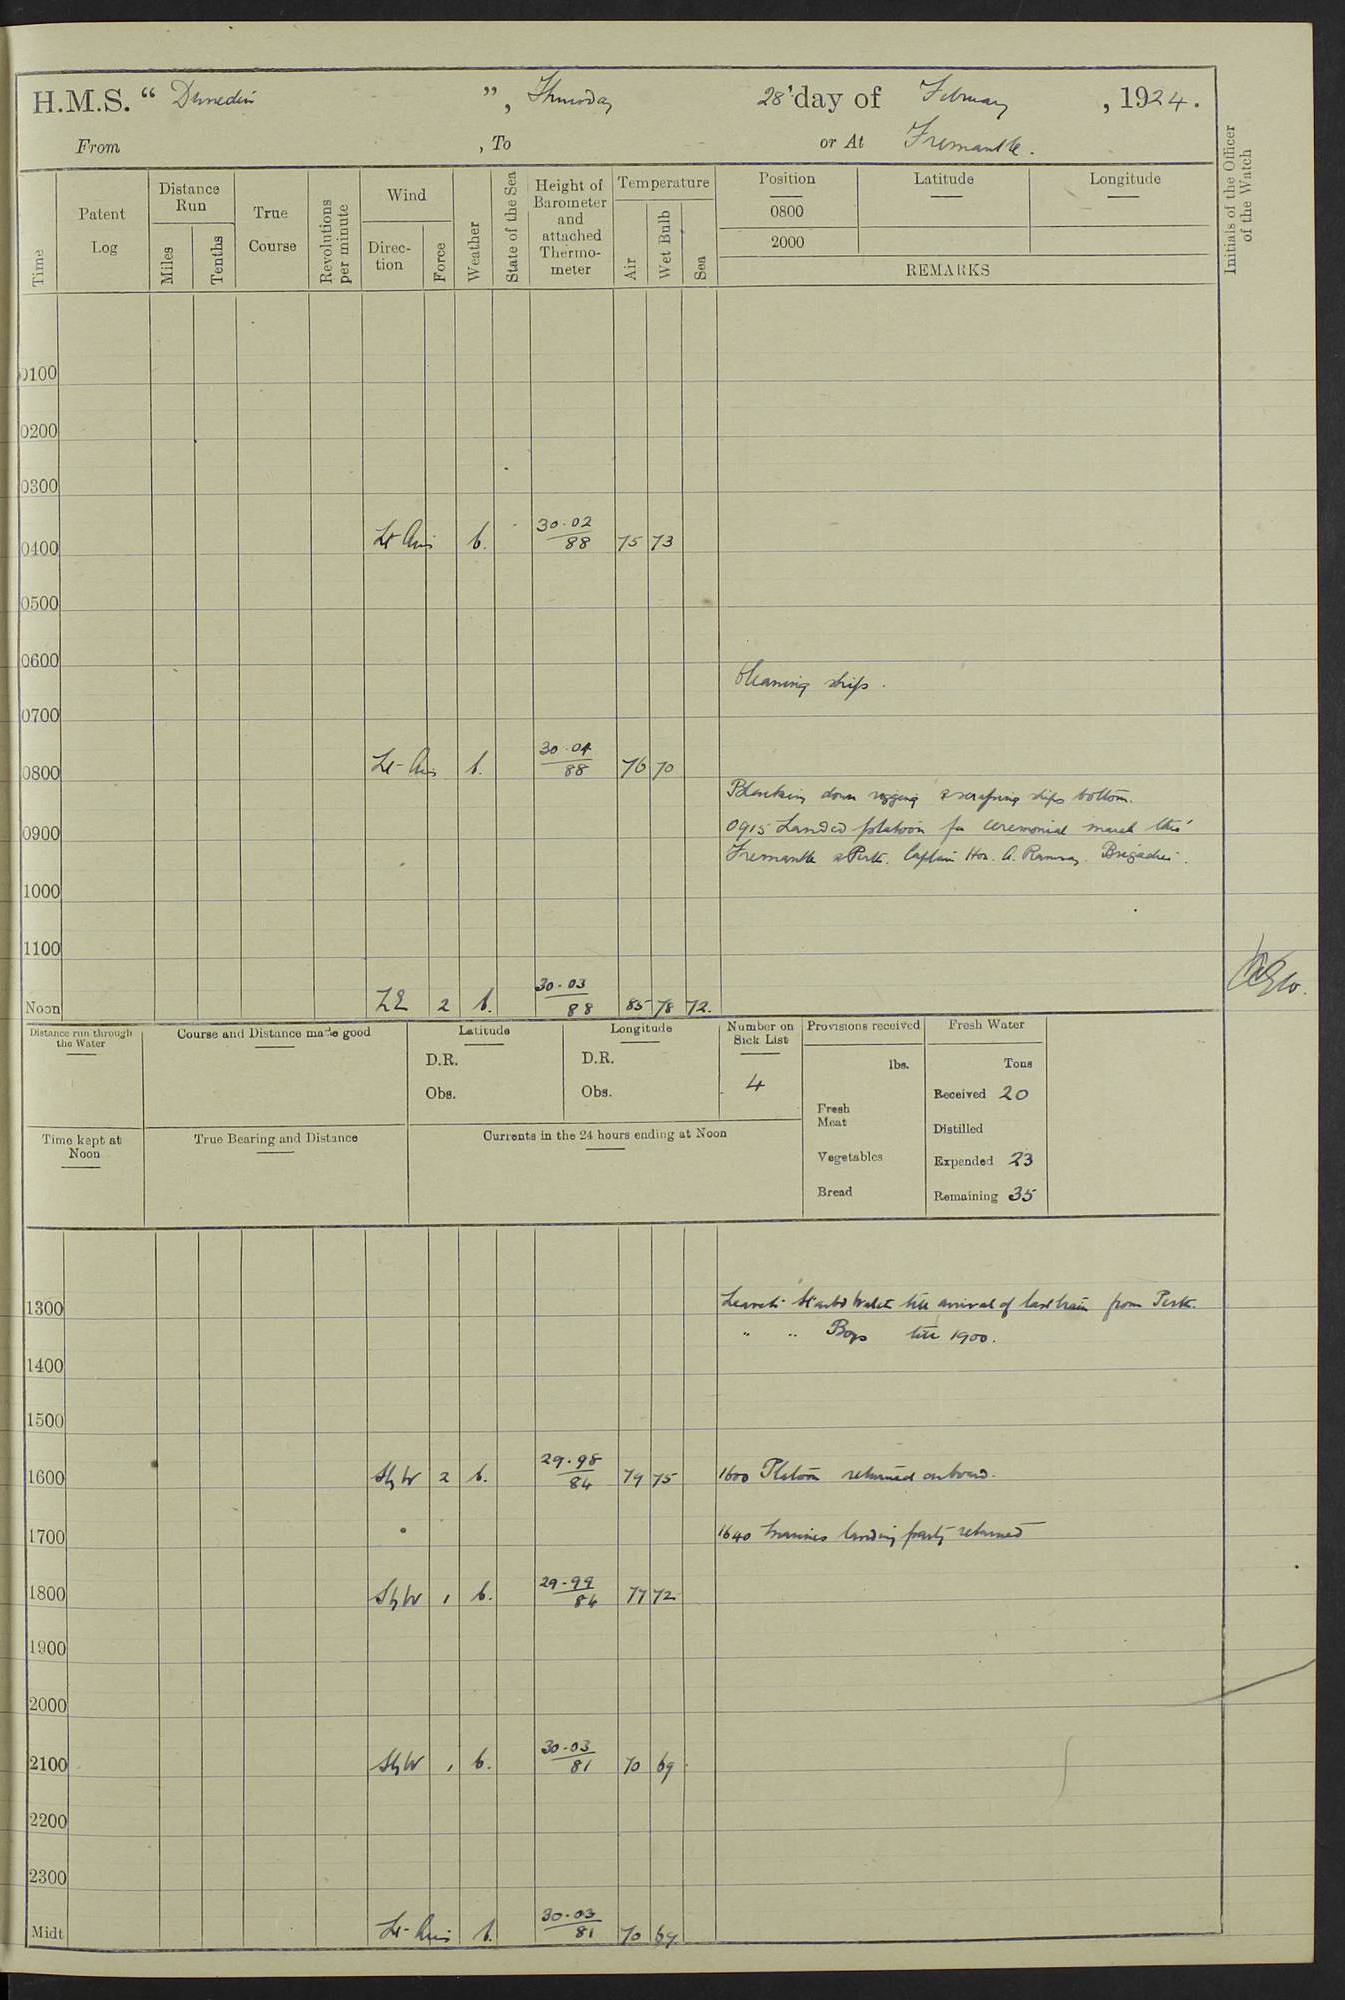 H.M.S. “ Dunedin ”, Thursday 28' day of February, 1924.
From , To or At Fremantle.
Time
Patent Log
Distance Run
Miles
Tenths
True Course
Revolutions per minute
Wind
Direc-tion
Force
Weather
State of the Sea
Height of Barometer and attached Thermo-meter
Temperature
Air
Wet Bulb
Sea
Position Latitude Longitude
0800
2000
REMARKS
Initials of the Officer of the Watch
0100
0200
0300
0400 Lt Airs b. 30.02 88 75 73
0500
0600
Cleaning ship.
0700
0800 Lt Airs b. 30.04 88 76 70
down rigging & scraping ships bottom.
0900 0915 Landed platoon for ceremonial march thro'
Fremantle & Perth. Captain Hon. A. Ramsay. Brigadier.
1000
1100
Noon 2 b. 30.03 88 85 78 72.
Distance run through the Water
Course and Distance made good
Latitude
D.R.
Obs.
Longitude
D.R.
Obs.
Number on Sick List
4
Provisions received
lbs.
Fresh Meat
Vegetables
Bread
Fresh Water
Tons
Received 20
Distilled
Expended 23
Remaining 35
Time kept at Noon
True Bearing and Distance
Currents in the 24 hours ending at Noon
1300 Leave to Starbd Watch till arrival of last train from Perth.
" " Boys till 1900.
1400
1500
1600 SbyW 2 b. 29.98 84 79 75 1600 Platoon returned onboard.
1700 1640 Marines landing party returned
1800 SbyW 1 b. 29.99 84 77 72
1900
2000
2100 SbyW 1 b. 30.03 81 70 69
2200
2300
Midt Lt Airs b. 30.03 81 70 69